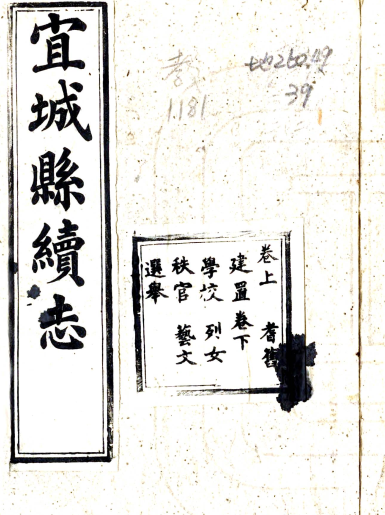 宜城縣續志
1181
地260.49
39
卷上 耆舊
建置 卷下
學校 列女
秩官 藝文
選舉